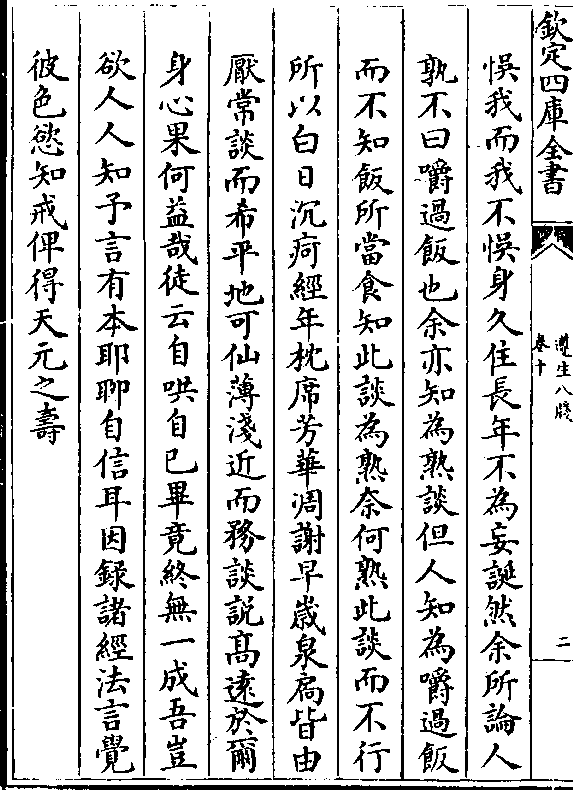 欽定四庫全書
遵生八牋
卷十
二
悞我而我不悞身久住長年不為妄誕然余所論人
孰不曰嚼過飯也余亦知為熟談但人知為嚼過飯
而不知飯所當食知此談為熟奈何熟此談而不行
所以白日沉疴經年枕席芳華凋謝早歲泉扃皆由
厭常談而希平地可仙薄淺近而務談說髙逺於爾
身心果何益哉徒云自哄自己畢竟終無一成吾豈
欲人人知予言有本耶聊自信耳因録諸經法言覺
彼色慾知戒俾得天元之壽